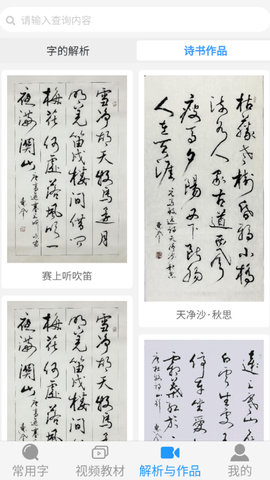 请输入查询内容
字的解析
诗书作品
雪净胡天牧马还月
明羌笛戍楼间借问
梅花何处落风吹一
夜满关山
赛上听吹笛
枯藤老树昏鸦小桥
流水人家古道西风
瘦马夕阳西下断肠
人在天涯
天净沙·秋思
雪净胡天牧马还月
明羌笛戍楼间借问
梅花何处落风吹一
夜满关山
常用字
视频教材
解析与作品
我的